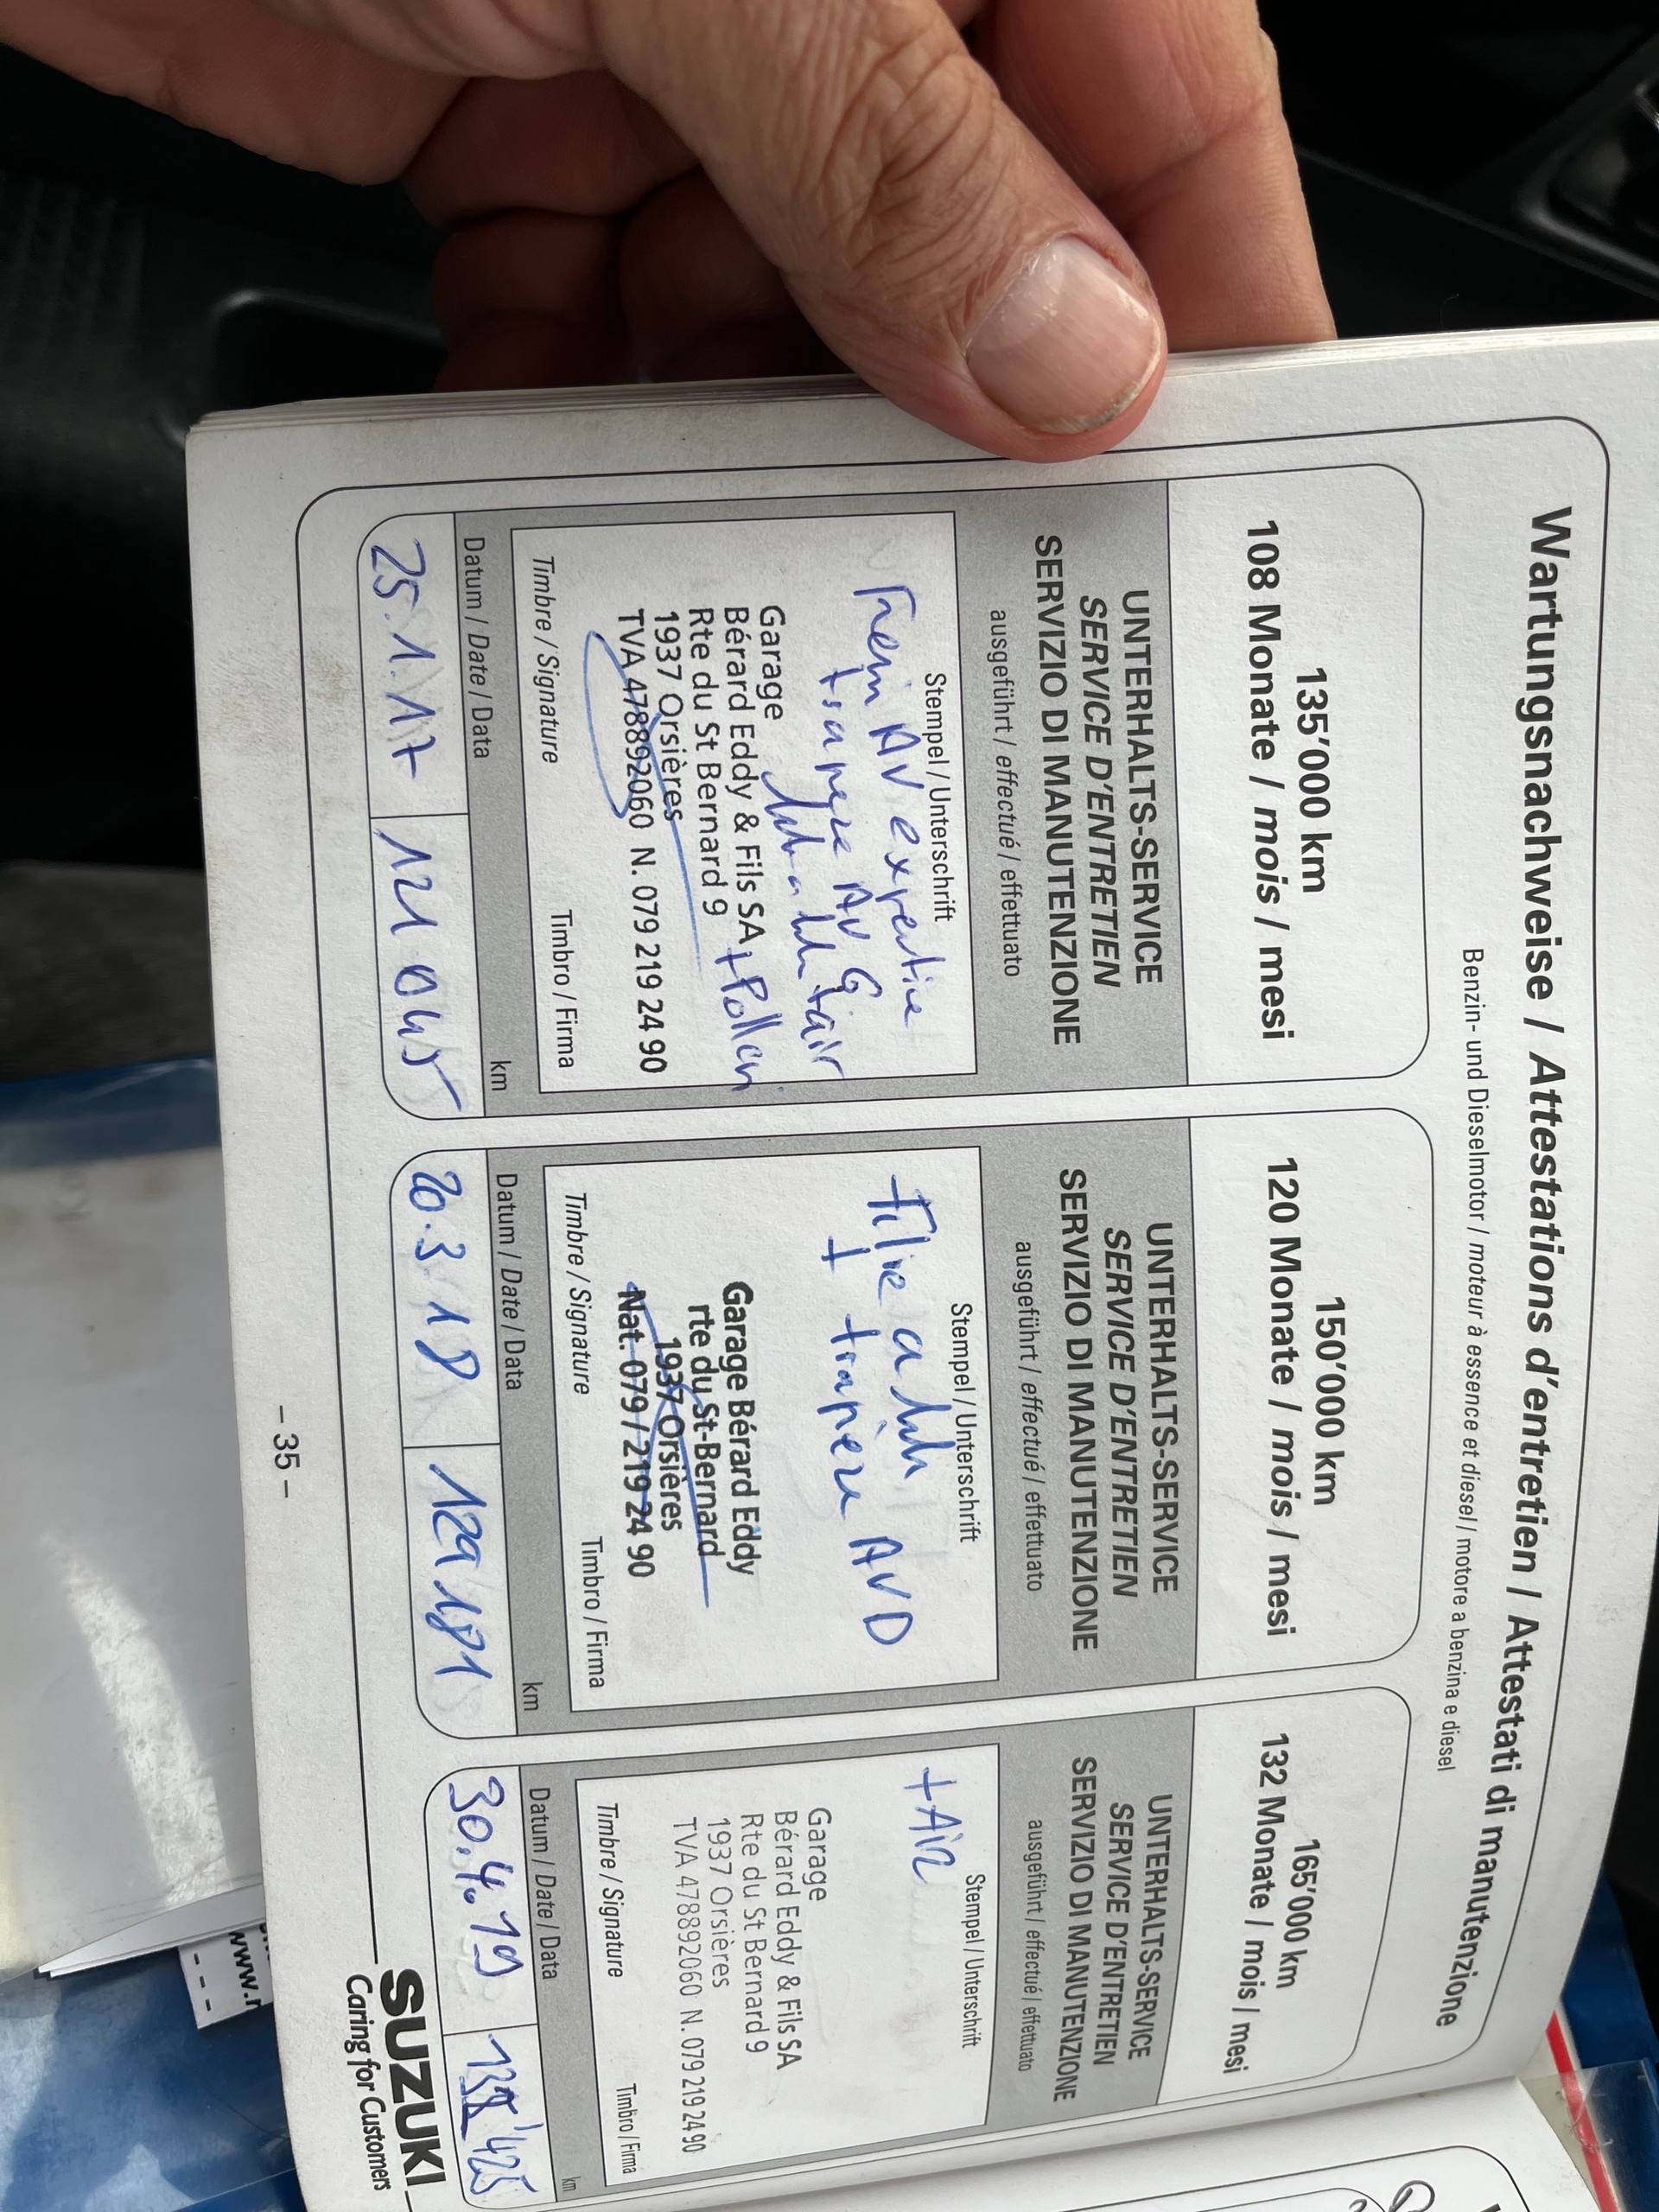 Wartungsnachweise / Attestations d'entretien / Attestati di manutenzione
Benzin- und Dieselmotor / moteur à essence et diesel / motore a benzina e diesel
135'000 km
108 Monate / mois / mesi
UNTERHALTS-SERVICE
SERVICE D'ENTRETIEN
SERVIZIO DI MANUTENZIONE
ausgeführt / effectué / effettuato
Stempel / Unterschrift
Frein AV expertise
+ AV G
d'air
Garage
Bérard Eddy & Fils SA + Pollen
Rte du St Bernard 9
1937 Orsières
TVA 478892060 N. 079 219 24 90
Timbre / Signature
Timbro / Firma
Datum / Date / Data
km
25.1.17
121 045
150'000 km
120 Monate / mois / mesi
UNTERHALTS-SERVICE
SERVICE D'ENTRETIEN
SERVIZIO DI MANUTENZIONE
ausgeführt / effectué / effettuato
Stempel / Unterschrift
AVD
+
Garage Bérard Eddy
rte du St-Bernard
1937 Orsières
Nat. 079 / 219 24 90
Timbre / Signature
Timbro / Firma
Datum / Date / Data
km
20.3.18
129 181
165'000 km
132 Monate / mois / mesi
UNTERHALTS-SERVICE
SERVICE D'ENTRETIEN
SERVIZIO DI MANUTENZIONE
ausgeführt / effectué / effettuato
Stempel / Unterschrift
+ Air
Garage
Bérard Eddy & Fils SA
Rte du St Bernard 9
1937 Orsières
TVA 478892060 N. 079 219 24 90
Timbre / Signature
Timbro / Firma
Datum / Date / Data
km
30.4.19
138'425
– 35 –
SUZUKI
Caring for Customers
www.